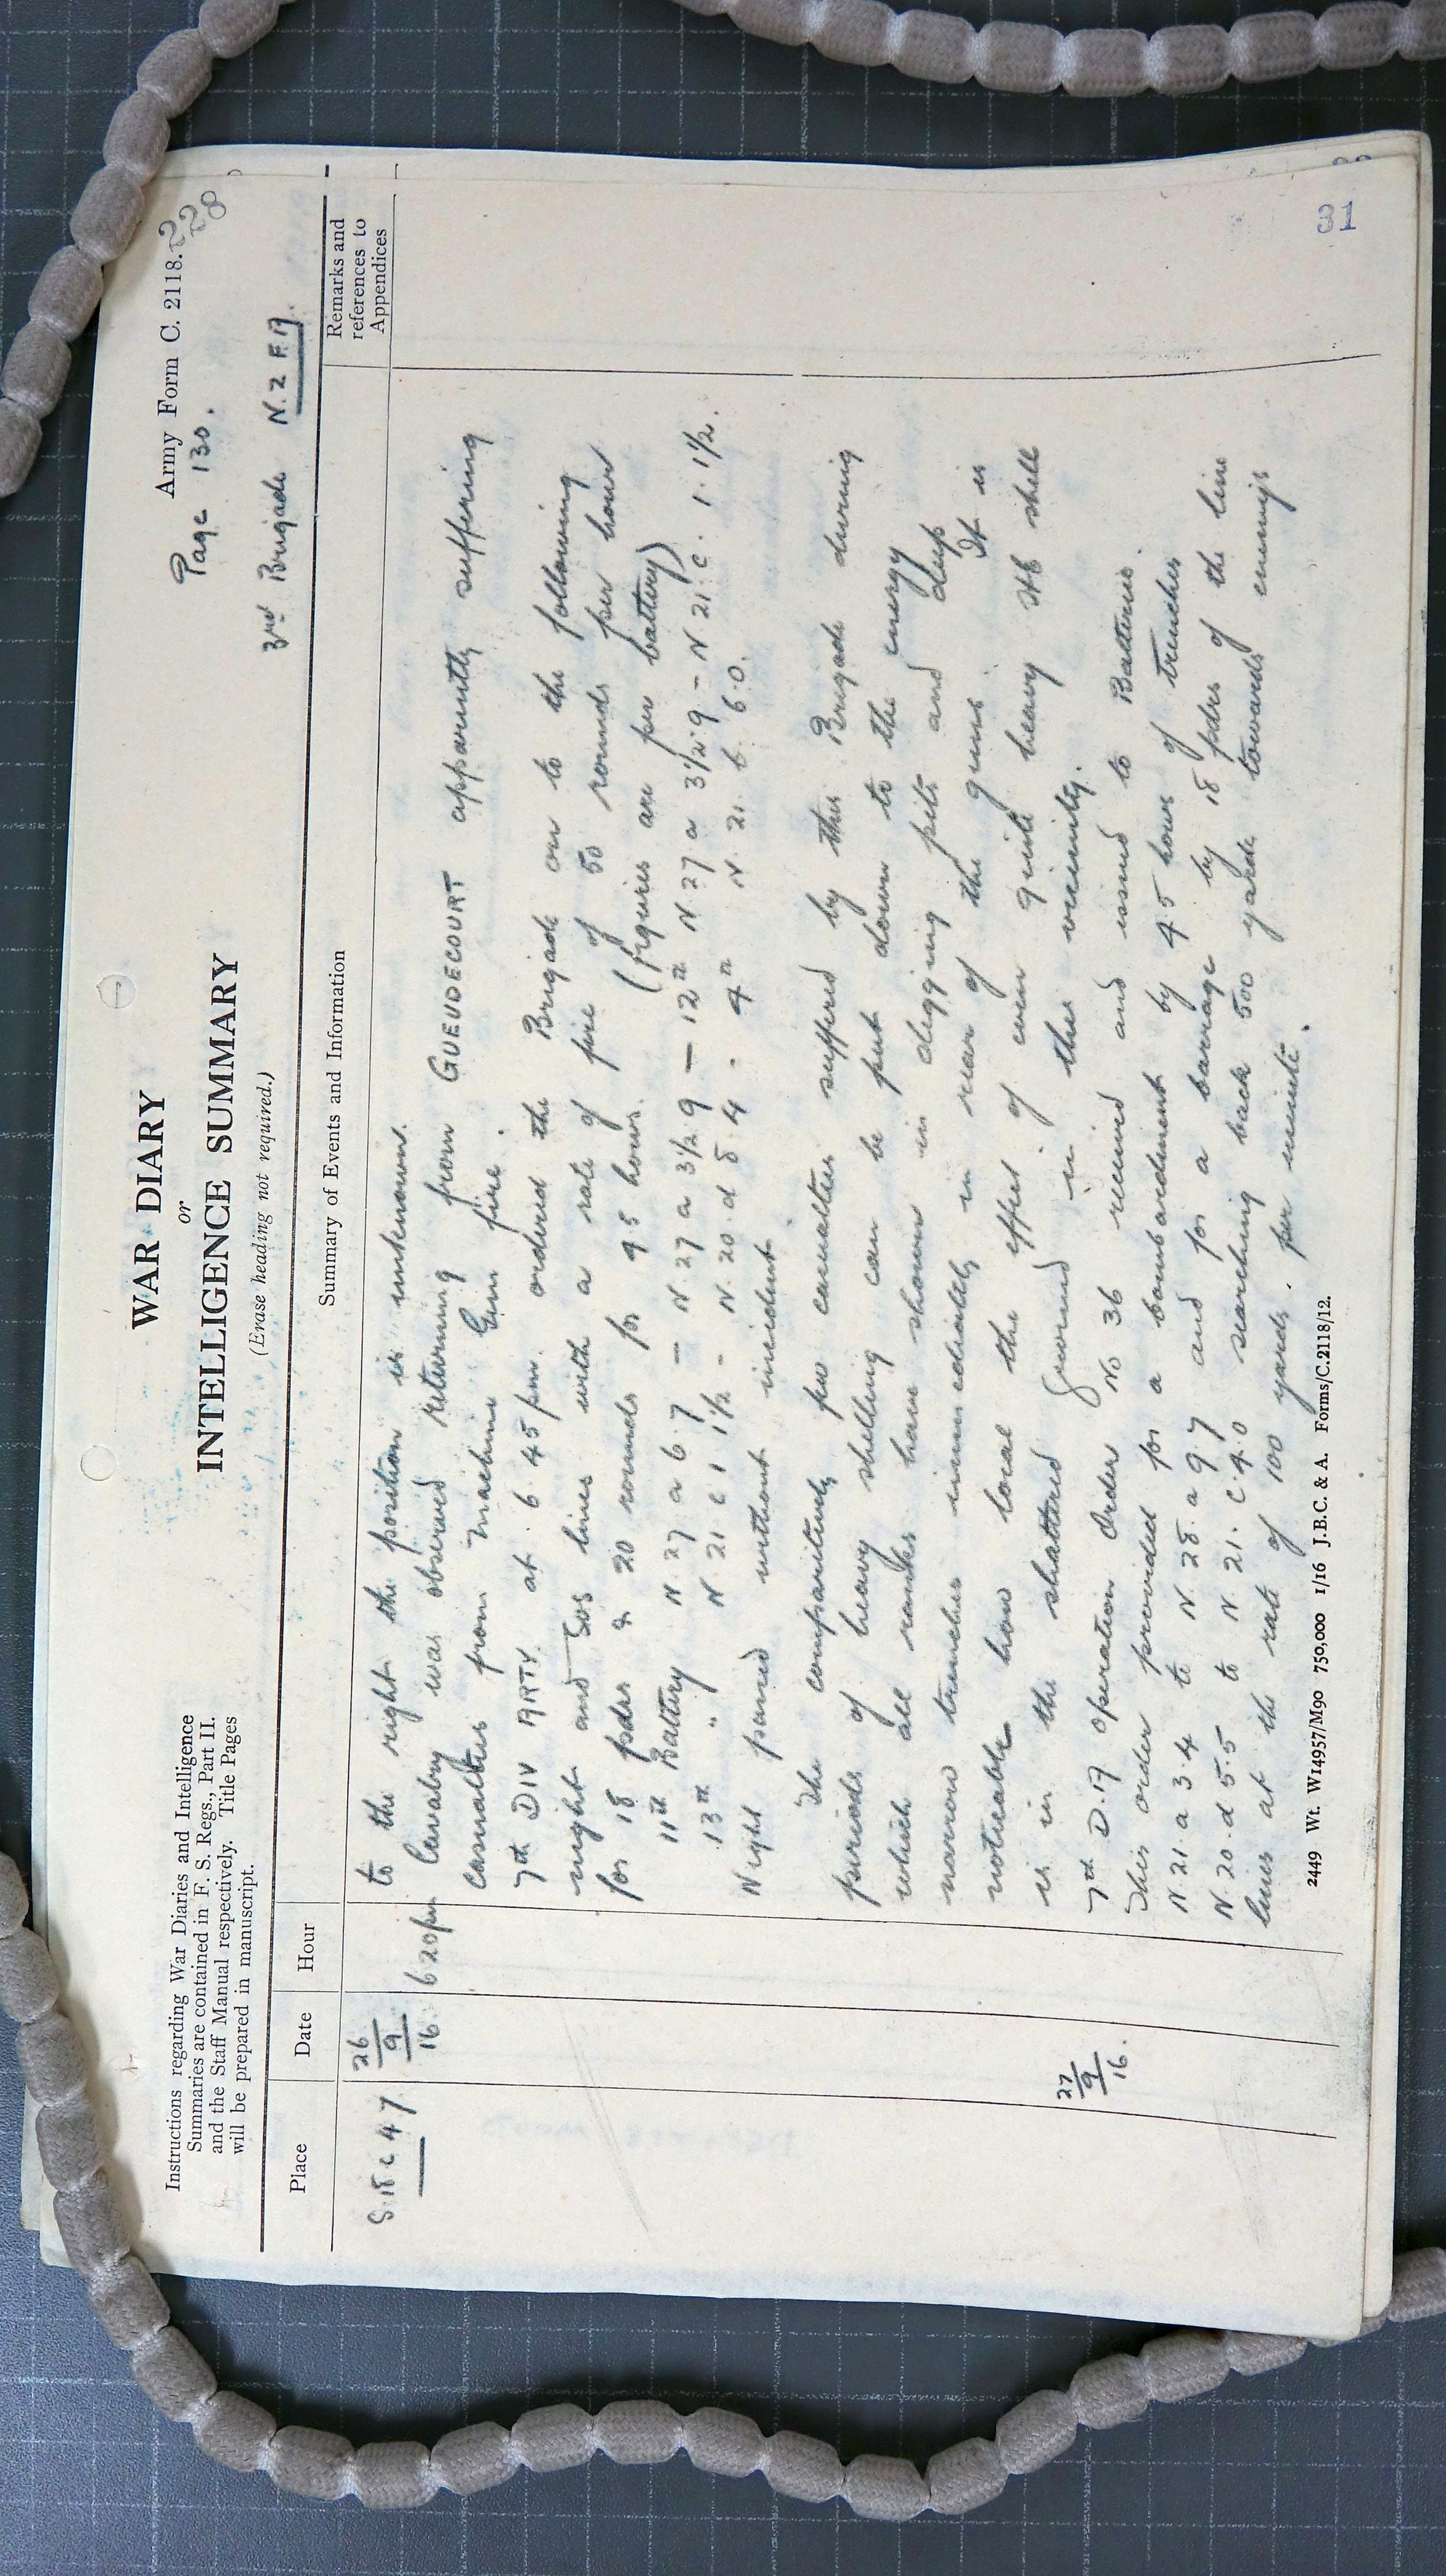 Army Form C. 2118.
228
Page 130.
3rd Brigade N.Z.F.A.
WAR DIARY
or
INTELLIGENCE SUMMARY
(Erase heading not required.)
Instructions regarding War Diaries and Intelligence
Summaries are contained in F. S. Regs., Part II.
and the Staff Manual respectively. Title Pages
will be prepared in manuscript.
Place Date Hour Summary of Events and Information Remarks and references to Appendices
S.18 c 4 7 26/9/16. to the right the position is unknown.
6 20 pm Cavalry was observed returning from GUEUDECOURT apparently suffering
casualties from Machine Gun fire.
7th DIV ARTY. at 6 45 pm. ordered the Brigade on to the following
night and SOS lines with a rate of fire of 50 rounds per hour
for 18 pdrs & 20 rounds for 4.5 hows. (figures are per battery)
11th Battery N 27 a 6.7 — N 27 a 3½ 9 — 12th N 27 a 3½.9 – N 21.c. 1.1½.
13th " N 21 c 1 1½ - N. 20.d 8 4 . 4th N 21 b 6.0.
Night passed without incident.
The comparitively few casualties suffered by this Brigade during
periods of heavy shelling can be put down to the energy
which all ranks have shown in digging pits and deep
narrow trenches immediately in rear of the guns. It is
noticeable how local the effect of even quite heavy HE shell
is in the shattered ground in this vicinity.
27/9/16. 7th D.A operation Order No 36 received and issued to Batteries.
This order provided for a bombardment by 4.5 hows of trenches
N 21.a 3.4 to N 28.a 9.7 and for a barrage by 18 pdrs of the line
N.20.d 5.5 to N 21.c 4.0 searching back 500 yards towards enemys
lines at the rate of 100 yards. per minute.
2449 Wt. W14957/M90 750,000 1/16 J.B.C. & A. Forms/C.2118/12.
31